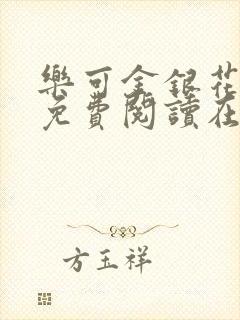 樂可金銀花
免費閱讀在
方玉祥